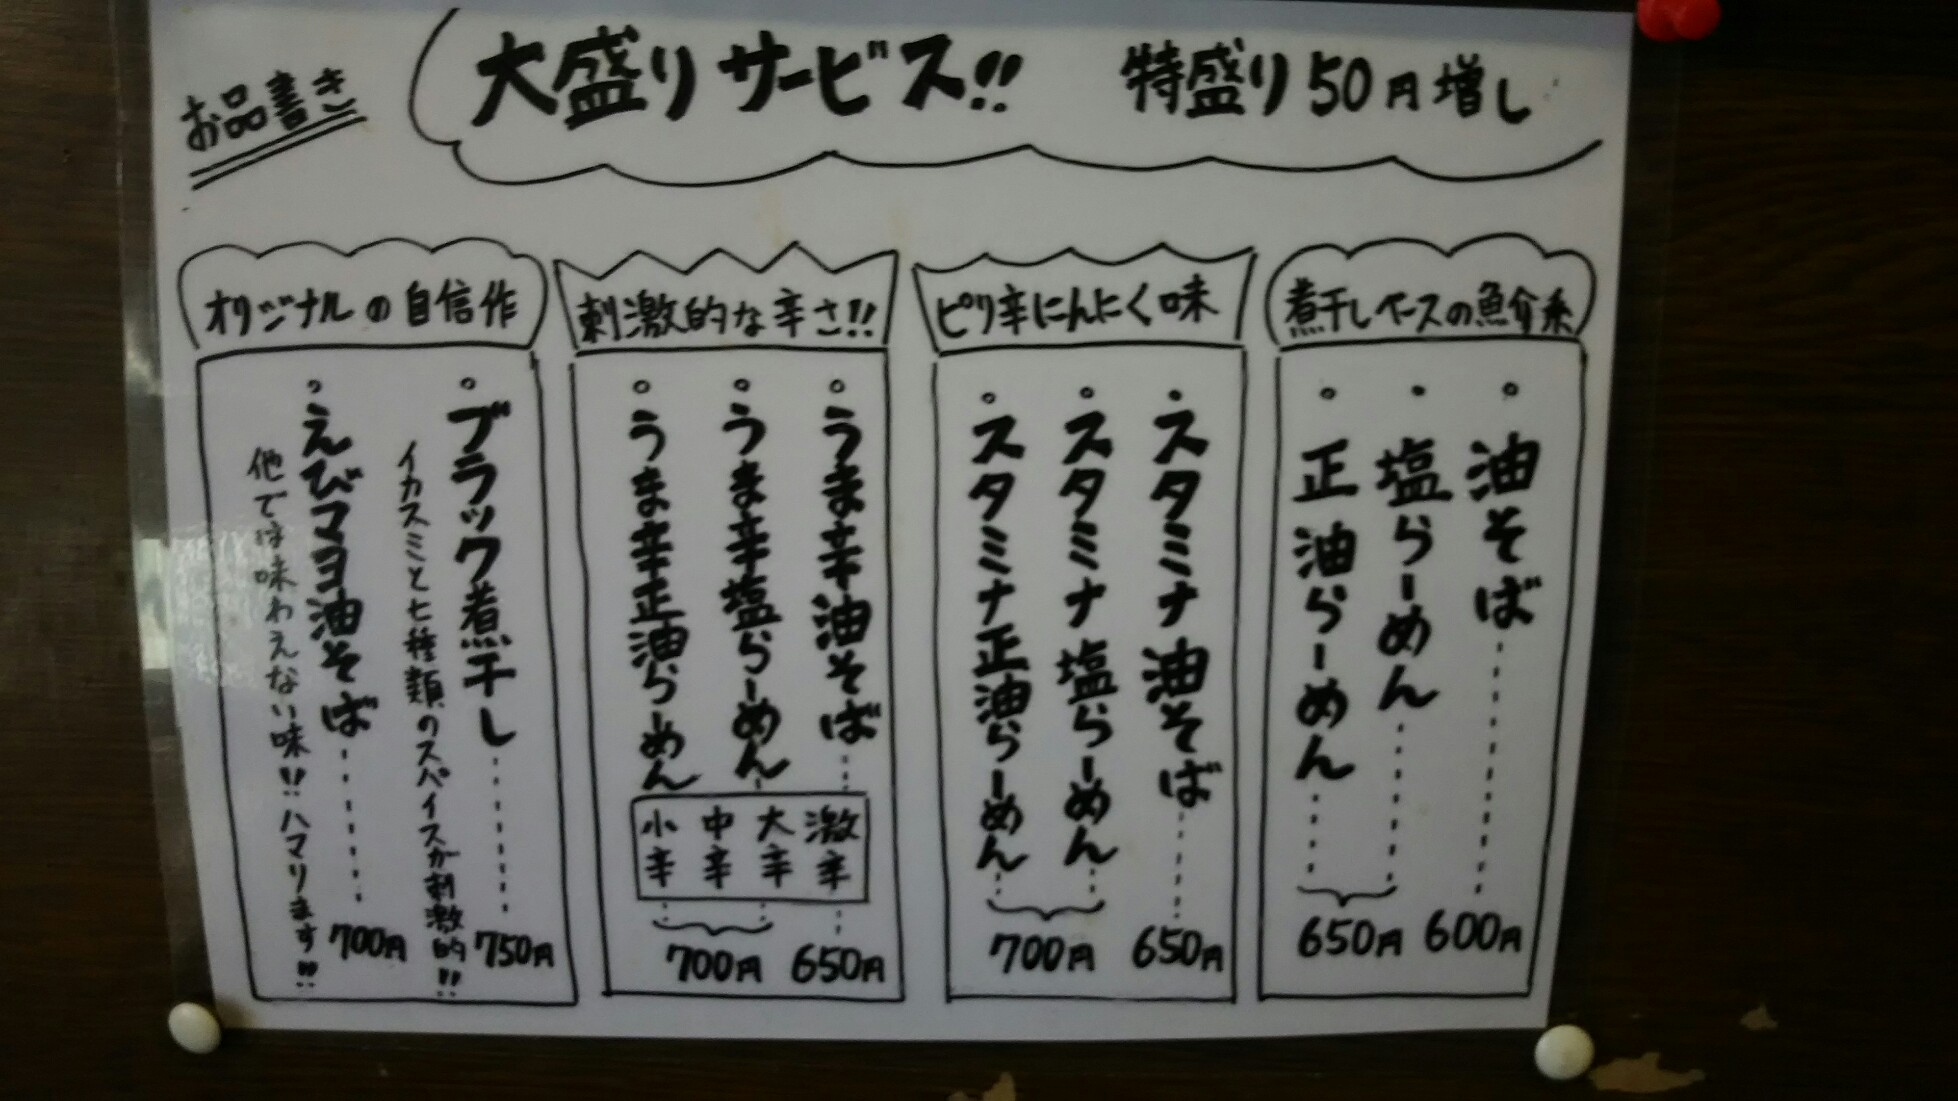 お品書き
大盛りサービス!!
特盛り50円増し
煮干しベースの魚介系
。油そば
・塩らーめん
。正油らーめん
650円
600円
ピリ辛にんにく味
・スタミナ油そば
。スタミナ塩らーめん
。スタミナ正油らーめん
700円
650円
刺激的な辛さ!!
。うま辛油そば
。うま辛塩らーめん
。うま辛正油らーめん
激辛
大辛
中辛
小辛
700円
650円
オリジナルの自信作
。ブラック煮干し
750円
イカスミと七種類のスパイスが刺激的!!
。えびマヨ油そば
700円
他では味わえない味!!ハマります!!